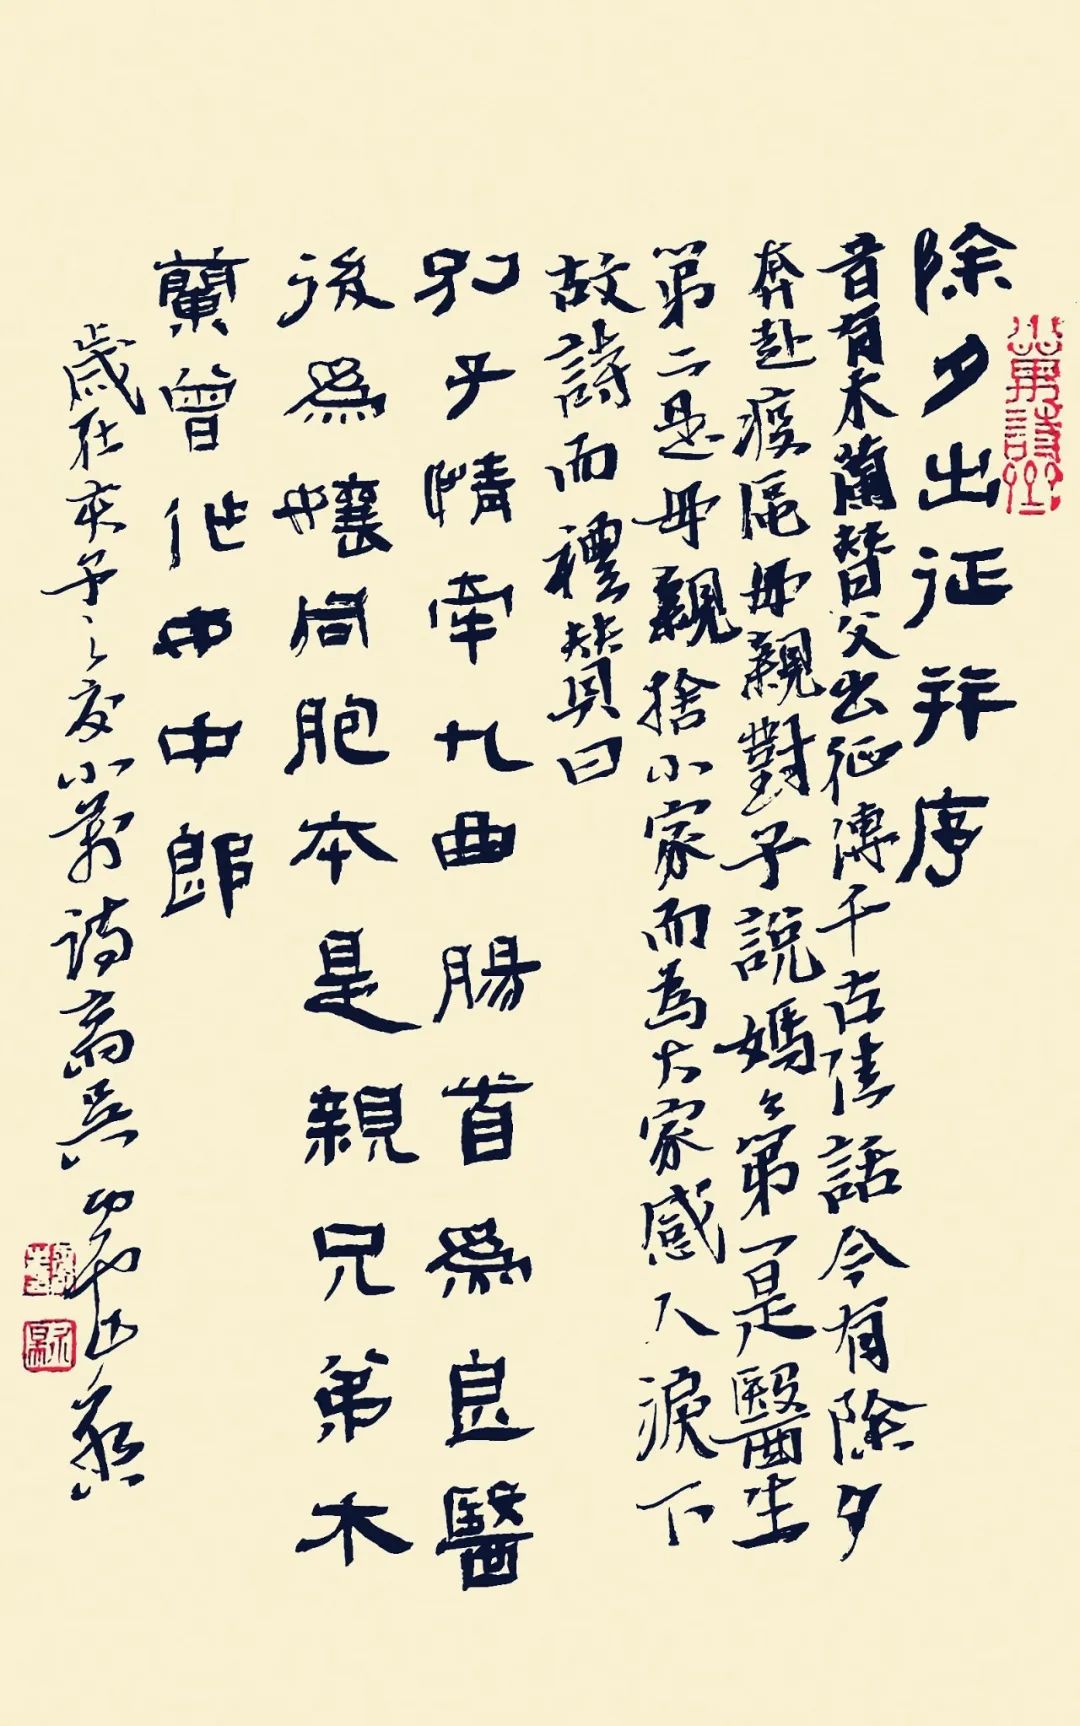 除夕出征并序
昔有木蘭替父出征傳千古佳話今有除夕
奔赴疫區母親對子說媽々第一是醫生
第二是母親捨小家而為大家感人淚下
故詩而禮赞曰
別子情牽九曲腸首為良醫
後為孃同胞本是親兄弟木
蘭曾作女中郎
歲在庚子之夏小萬詩